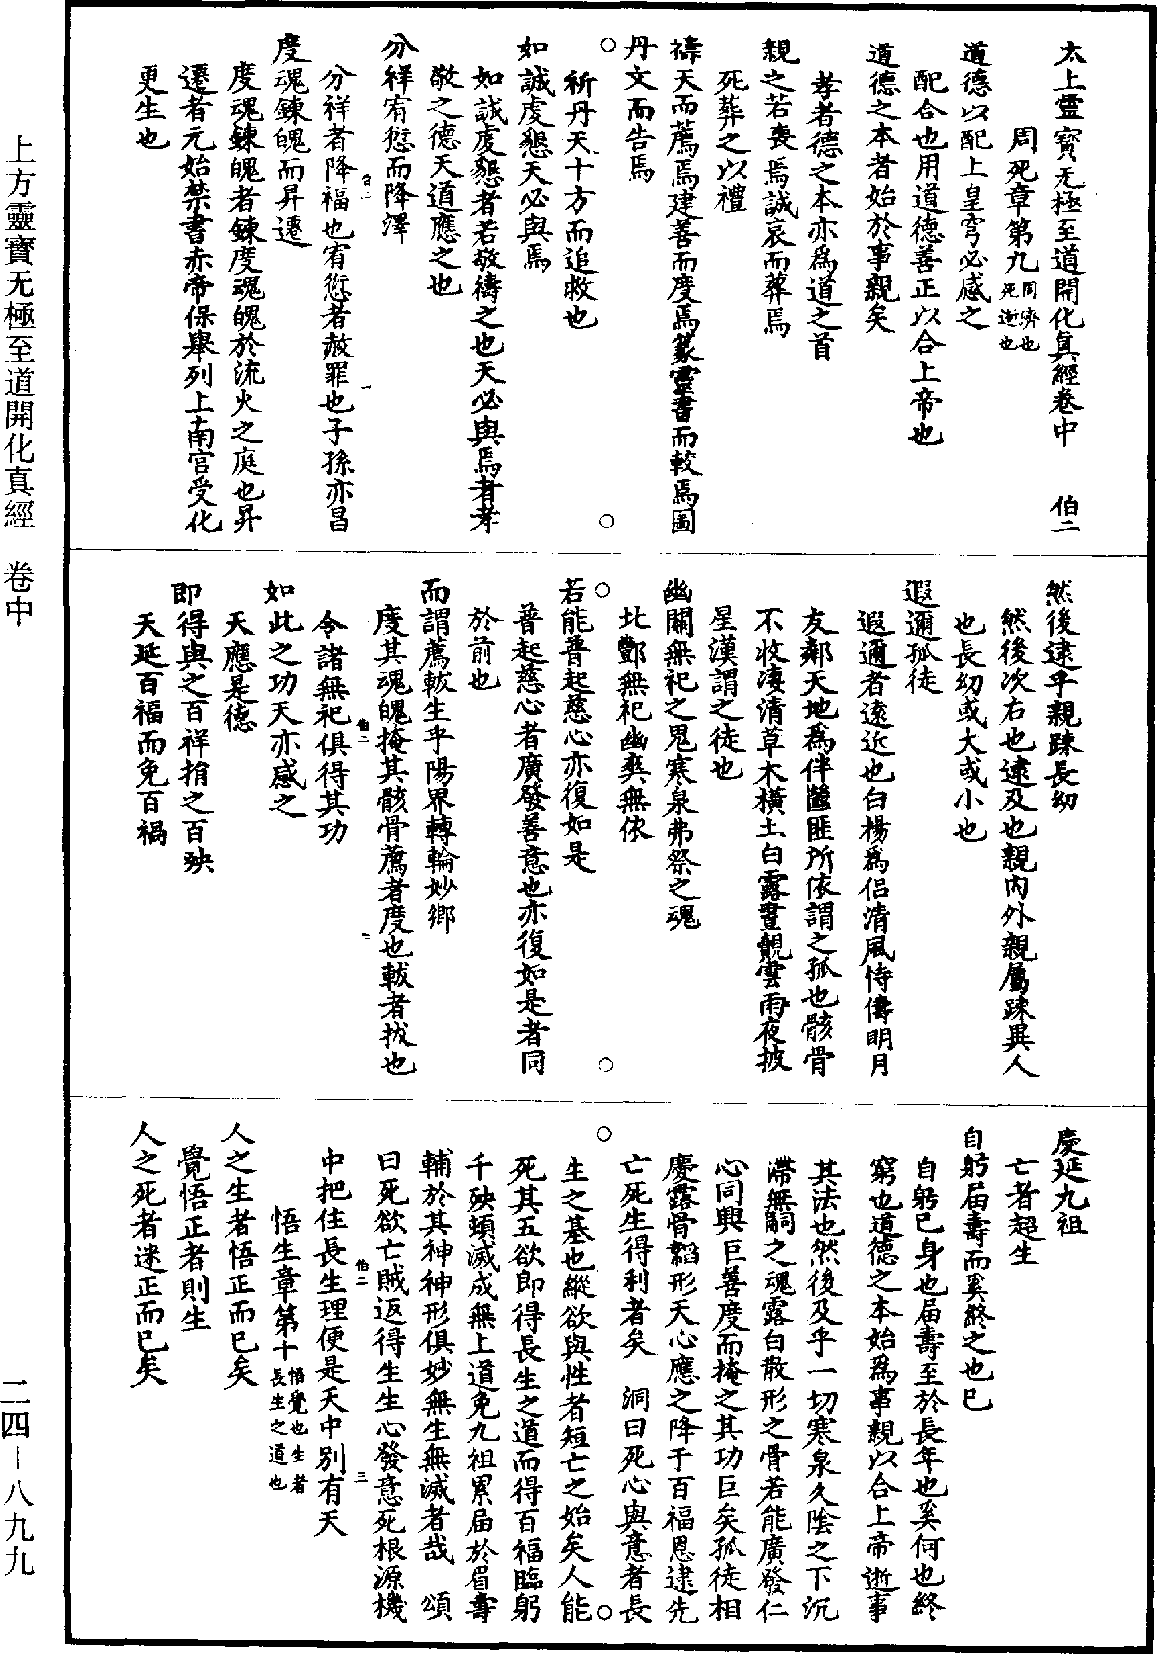 太上靈寶无極至道開化真經卷中　伯二
周死章第九周濟也死逝也
道德以配上皇穹必感之
配合也用道德善正以合上帝也
道德之本者始於事親矣
孝者德之本亦為道之首
親之若喪焉誠哀而葬焉
死葬之以禮
禱天而薦焉建善而度焉篆靈書而較焉圖
丹文而告焉
祈丹天十方而追救也
如誠虔懇天必與焉
如誠虔懇者若敬禱之也天必與焉者孝
敬之德天道應之也
分祥宥愆而降澤
分祥者降福也宥愆者赦罪也子孫亦昌
度魂鍊魄而昇遷
度魂鍊魄者鍊度魂魄於流火之庭也昇
遷者元始禁書赤帝保舉列上南宮受化
更生也
然後逮乎親踈長幼
然後次右也逮及也親內外親屬踈異人
也長幼或大或小也
遐邇孤徒
遐邇者遠近也白楊為侶清風恃儔明月
友鄰天地為伴蠒匪所依謂之孤也骸骨
不收淒清草木橫土白露晝覩雲雨夜披
星漢謂之徒也
幽關無祀之鬼寒泉弗祭之魂
北酆無祀幽爽無依
若能普起慈心亦復如是
普起慈心者廣發善意也亦復如是者同
於前也
而謂薦軷生乎陽界轉輪妙鄉
度其魂魄掩其骸骨薦者度也軷者拔也
令諸無祀俱得其功
如此之功天亦感之
天應是德
即得與之百祥捐之百殃
天延百福而免百禍
慶延九祖
亡者超生
自躬届壽而奚終之也已
自躬已身也届壽至於長年也奚何也終
窮也道德之本始為事親以合上帝逝事
其法也然後及乎一切寒泉久陰之下沉
滯無嗣之魂露白散形之骨若能廣發仁
心同興巨善度而掩之其功巨矣孤徒相
慶露骨韜形天心應之降于百福恩逮先
亡死生得利者矣　洞曰死心與意者長
生之基也縱欲與性者短亡之始矣人能
死其五欲即得長生之道而得百福臨躬
千殃頓滅成無上道免九祖累届於眉壽
輔於其神神形俱妙無生無滅者哉　頌
曰死欲亡賊返得生生心發意死根源機
中把住長生理便是天中別有天
悟生章第十悟覺也生者長生之道也
人之生者悟正而已矣
覺悟正者則生
人之死者迷正而已矣
上方靈寶无極至道開化真經　卷中
二四—八九九